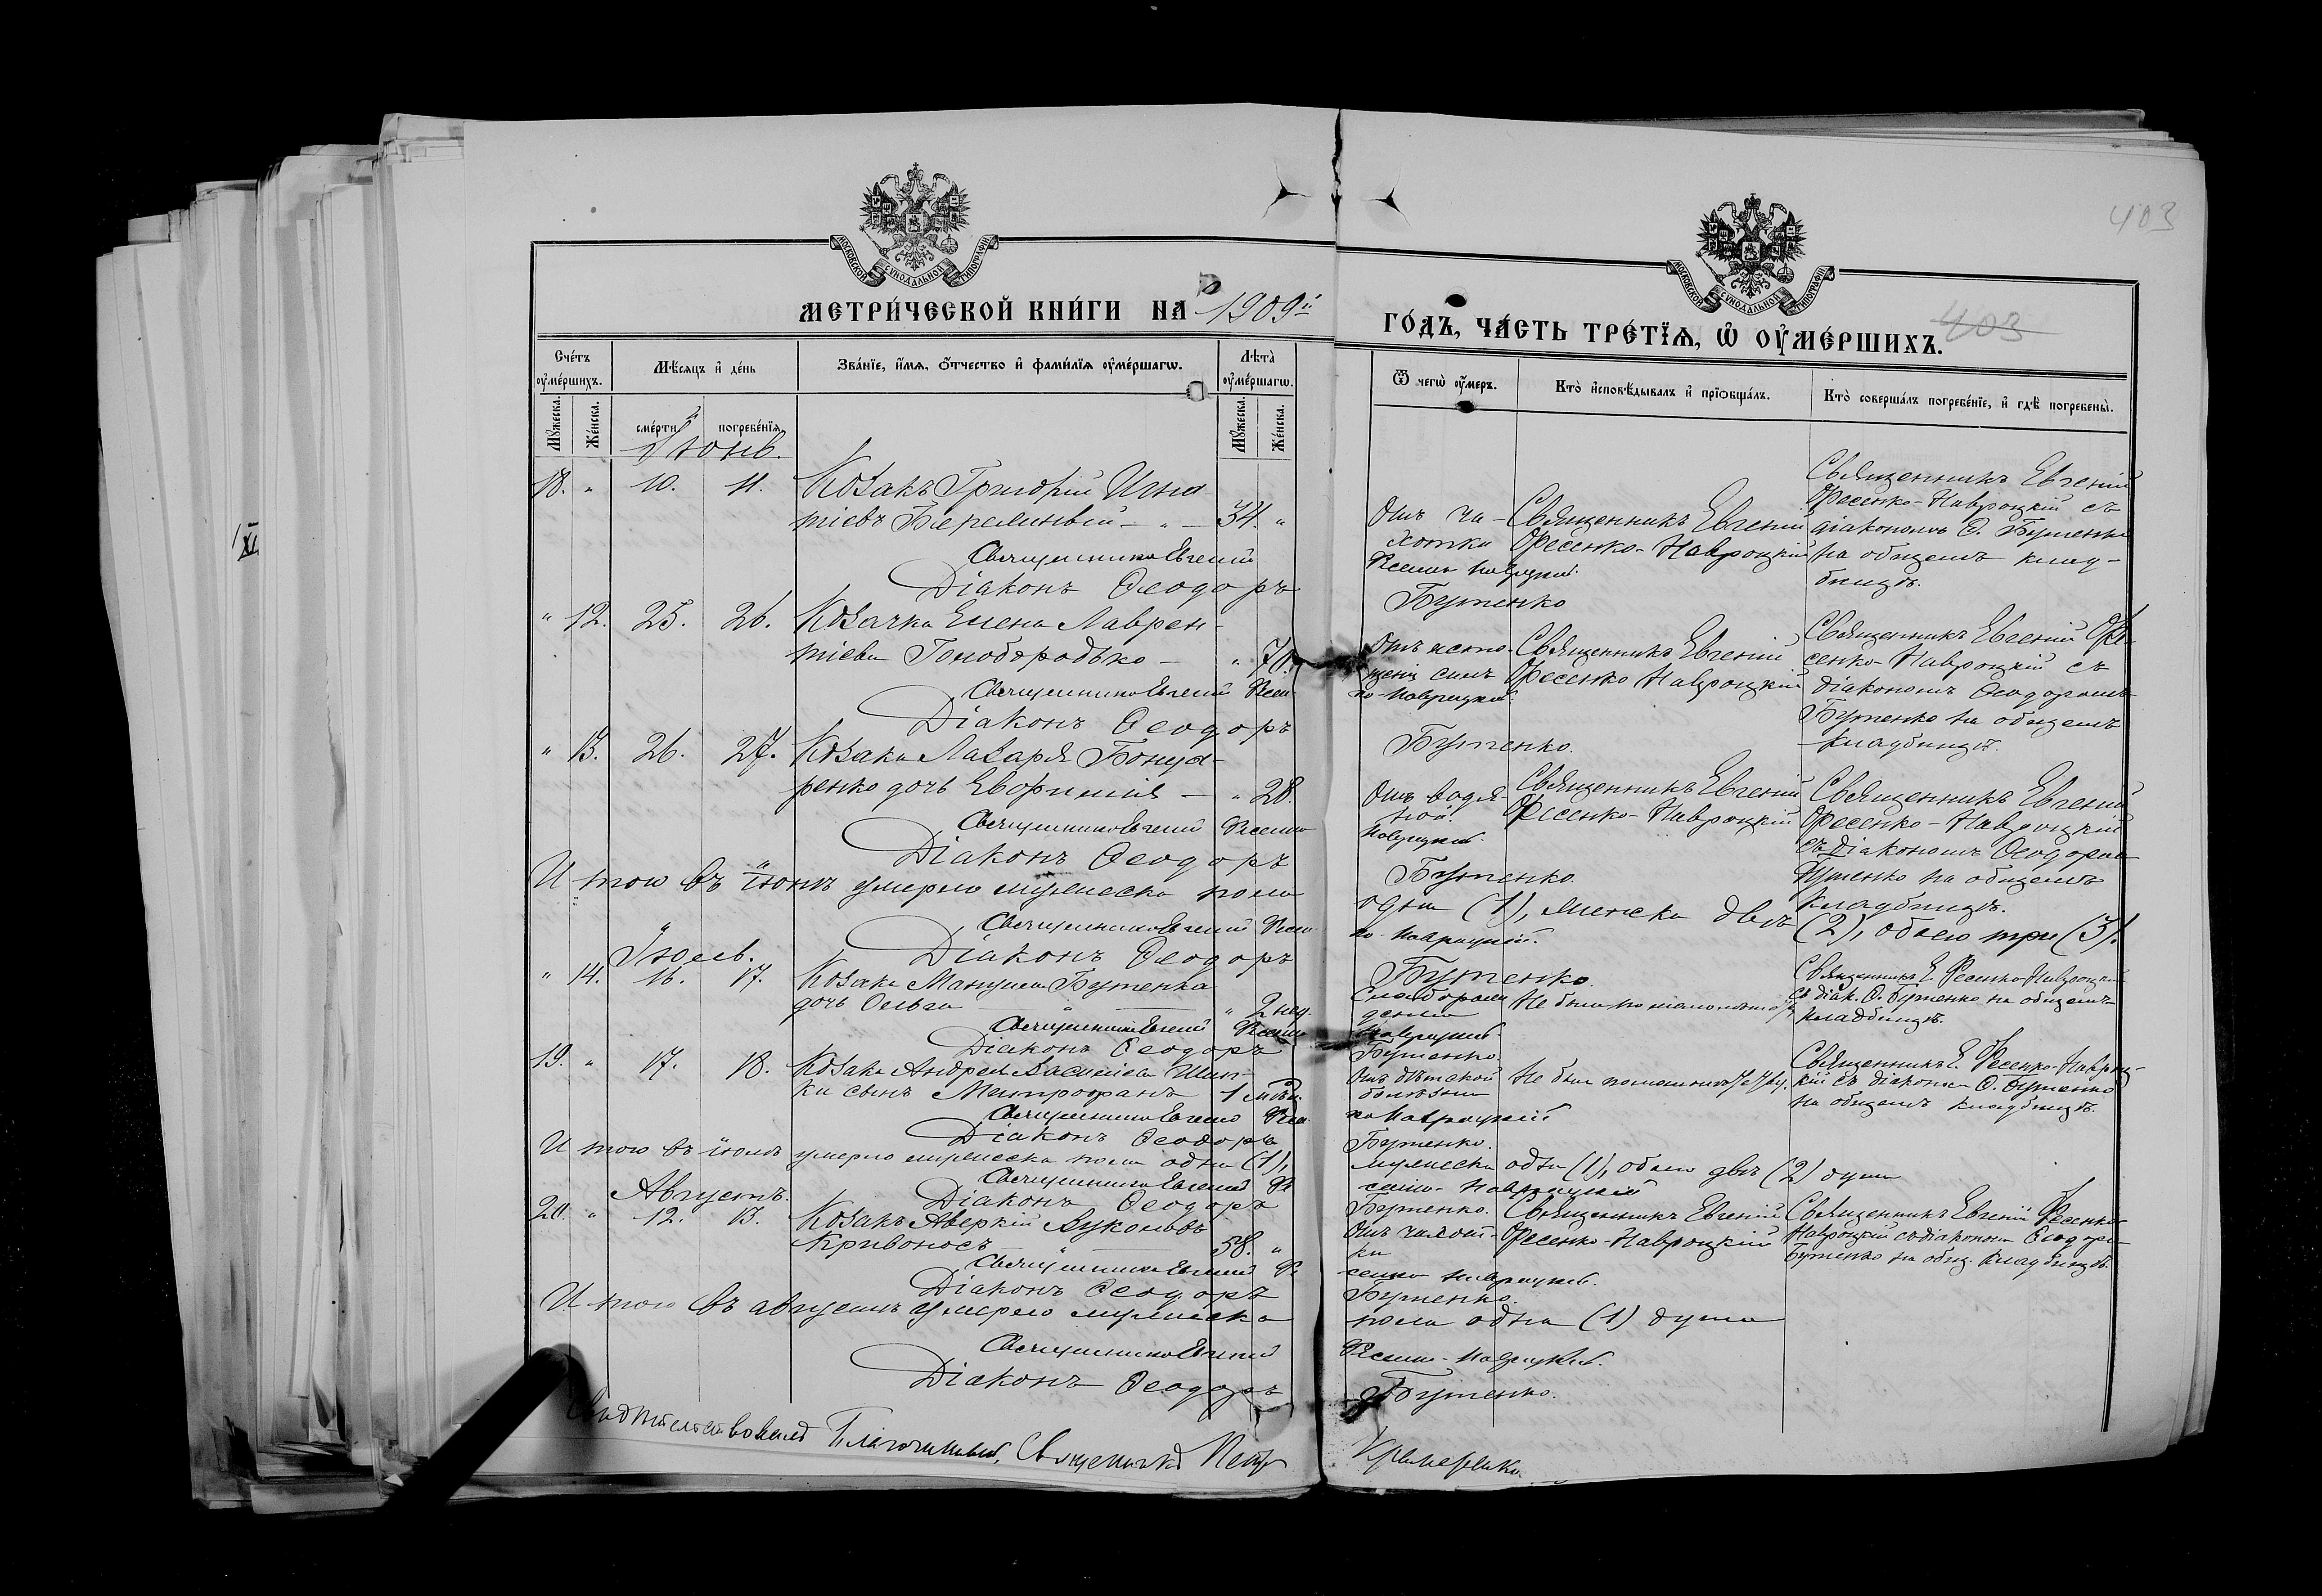 403
МОСКОВСКОЙ СУНОДАЛЬНОЙ ТИПОГРАФІИ
МОСКОВСКОЙ СУНОДАЛЬНОЙ ТИПОГРАФІИ
МЕТРИ́ЧЕСКОЙ КНИ́ГИ НА 1909й
ГО́ДЪ, ЧА́СТЬ ТРЕ́ТЇѦ, Ѡ҆ ОУ҆МЕ́РШИХЪ.
403
Сче́тъ оу҆ме́ршихъ.
Мѣ́сѧцъ и҆ де́нь
Зва́нїе, и҆́мѧ, ѻ҆́тчество и҆ фами́лїѧ оу҆ме́ршагѡ.
Лѣ́та оу҆ме́ршагѡ.
Ѿ чегѡ̀ оу҆́меръ.
Кто̀ и҆сповѣ́дывалъ и҆ прїѡбща́лъ.
Кто̀ соверша́лъ погребе́нїе, и҆ гдѣ̀ погребены̀.
Мꙋ́жеска.
Же́нска.
сме́рти
погребе́нїѧ
Мꙋ́жеска.
Же́нска.
Іюнь.
18. " 10. 11. Козакъ Григорій Игна-
тіевъ 34. "
Отъ ча-
хотки
Священникъ Евгеній
Фесенко-Навроцкій
Священникъ Евгеній
Фесенко-Навроцкій съ
діакономъ Ѳ. Бутенко
на общемъ клад-
бищѣ.
Священникъ Евгеній Фесенко Навроцкій.
Діаконъ Ѳеодоръ Бутенко
" 12. 25. 26. Козачка Елена Лаврен-
тіева Голобородько — " 70.
Отъ исто-
щенія силъ
Священникъ Евгеній
Фесенко Навроцкій
Священникъ Евгеній Фе-
сенко-Навроцкій съ
діакономъ Ѳеодоромъ
Бутенко на общемъ
кладбищѣ.
Священникъ Евгеній Фесенко-Навроцкій.
Діаконъ Ѳеодоръ Бутенко.
" 13. 26. 27. Козака Лазаря Бонда-
ренко дочь Евфимія — " 28.
Отъ водя-
ной.
Священникъ Евгеній
Фесенко-Навроцкій
Священникъ Евгеній
Фесенко-Навроцкій
съ діакономъ Ѳеодоромъ
Бутенко на общемъ
кладбищѣ.
Священникъ Евгеній Фесенко Навроцкій.
Діаконъ Ѳеодоръ Бутенко.
Итого въ іюнѣ умерло мужеска пола одна (1), женска двѣ (2), обоего три (3).
Священникъ Евгеній Фесенко-Навроцкій.
Діаконъ Ѳеодоръ Бутенко.
Іюль.
" 14. 16. 17. Козака Мануила Бутенка
дочь Ольга " 2 нед.
Слаборож
денія
Не была по малолѣтс.
Священникъ Е. Фесенко-Навроцкій
съ діак. Ѳ. Бутенко на общемъ
кладбищѣ.
Священникъ Евгеній Фесенко Навроцкій.
Діаконъ Ѳеодоръ Бутенко.
19. " 17. 18. Козака Андрея Василіева
ка сынъ Митрофанъ 1 мѣс.
Отъ дѣтской
болѣзни
Священникъ Е. Фесенко-Навроц-
кій съ діакономъ Ѳ. Бутенко
на общемъ кладбищѣ.
Священникъ Евгеній Фесенко Навроцкій
Діаконъ Ѳеодоръ Бутенко.
Итого въ іюлѣ умерло мужеска пола одна (1), одна (1), обоего двѣ (2) души
Священникъ Евгеній Фесенко-Навроцкій
Діаконъ Ѳеодоръ Бутенко.
Августъ.
20. " 12. 13. Козакъ Аверкій Вуколовъ
Кривоносъ 58. "
Отъ чахот-
ки
Священникъ Евгеній
Фесенко-Навроцкій
Священникъ Евгеній Фесенко-
Навроцкій съ діакономъ Ѳеодоро
Бутенко на общ. кладбищѣ
Священникъ Евгеній Фесенко Навроцкій.
Діаконъ Ѳеодоръ Бутенко.
Итого въ августѣ умерло мужеска пола одна (1) душа
Священникъ Евгеній Фесенко-Навроцкій.
Діаконъ Ѳеодоръ Бутенко.
Свидѣтельствовалъ Благочинный, Священникъ Петръ